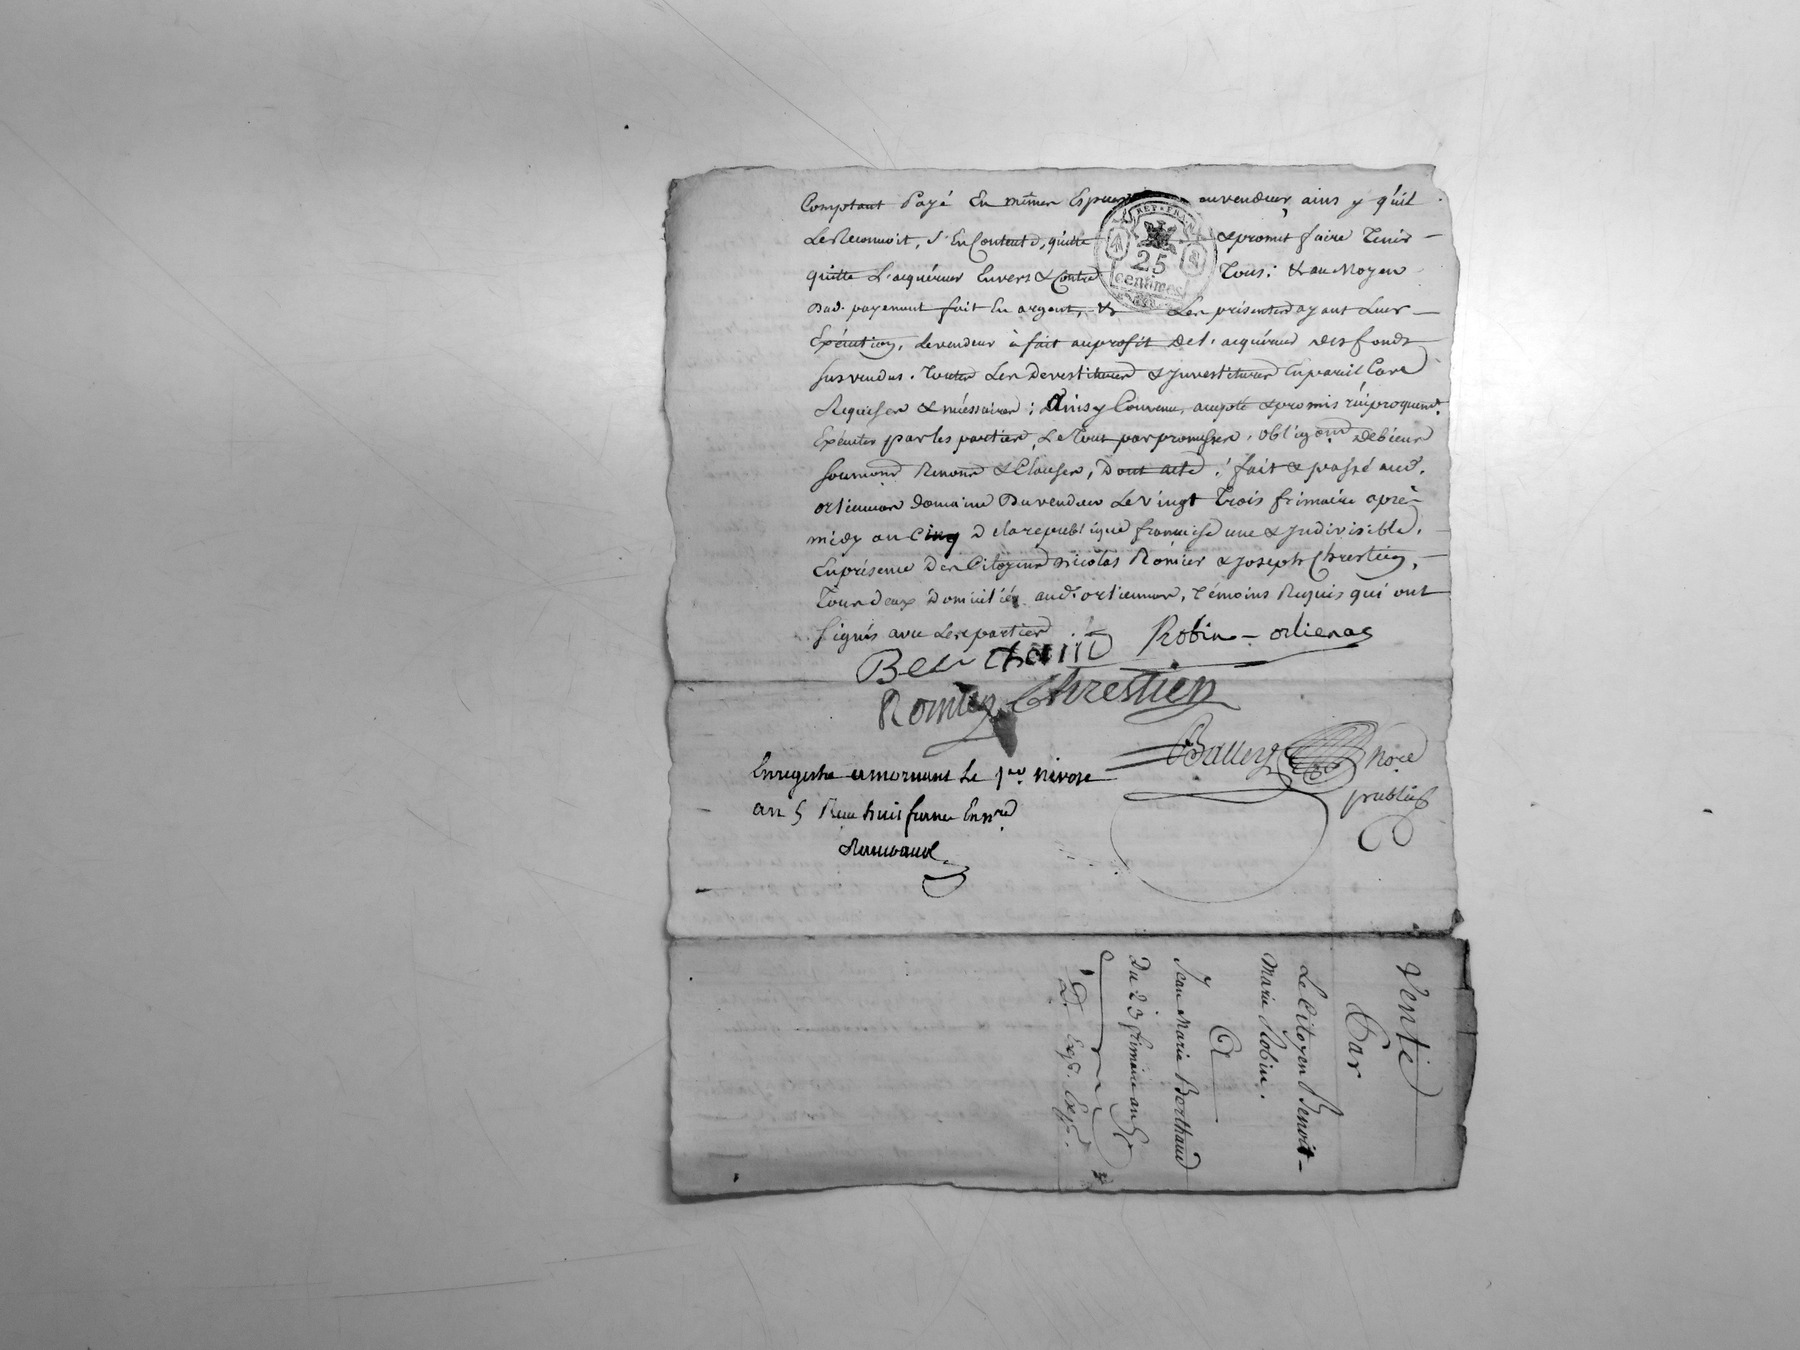 Comptant Payé En mêmes Espèces au vendeur, ainsy qu'il
Le Reconnoit, s'En Contente, quitte & promet faire Tenir
quitte L'acquéreur Envers & Contre Tous; & au Moyen
Dud. payement fait En argent, & Les présentes ayant Leur
Exécution, Le vendeur à fait au profit de L'acquéreur des fonds
sus vendus. Toutes Les Devestitures & Investitures En pareil Cas
Requises & nécessaires; Ainsy Convenu, accepté & promis réciproquemt.
Exécuter par les parties, Le Tout par promesses, obligaons De biens
soumions Renons & Clauses, Dont acte; fait & passé aud.
orliennas domaine Du vendeur Le vingt Trois frimaire après
midy an Cinq De la republique francaise une & Indivisible,
En présence Des Citoyens Nicolas Romier & Joseph Chrestien,
Tous deux Domiciliés aud. orliennas, Témoins Requis qui ont
signés avec Les parties
Robin orlienas
Romier Chrestien
Balley Nore
public
Enregistré a mornant Le 1er nivose
an 5 Reçu huit francs
REP. FRA.
25
centimes
Vente
Par
Le Citoyen Benoit
Marie Robin.
A
Jean Marie Berthaud
Du 23 frimaire an 5e